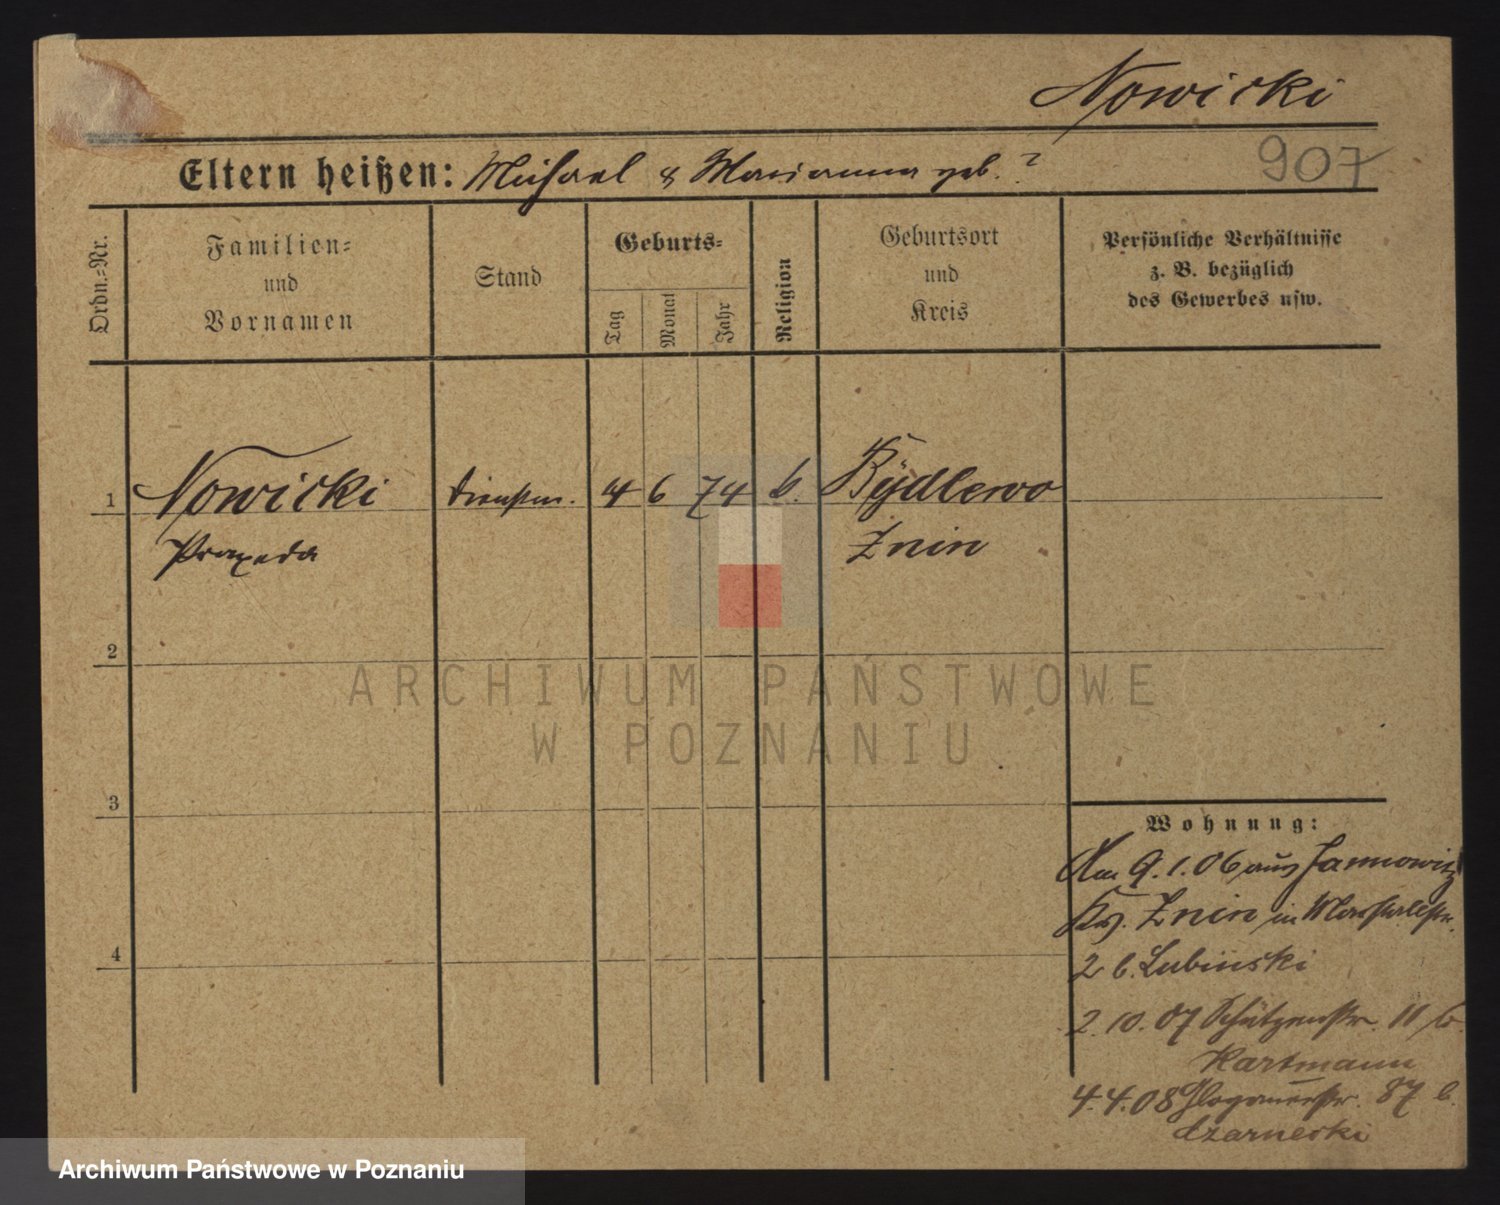 Nowicki
907
Eltern heißen: Michael & Marianna geb. ?
Ordn.-Nr.
Familien-
und
Vornamen
Stand
Geburts-
Tag
Monat
Jahr
Religion
Geburtsort
und
Kreis
Persönliche Verhältnisse
z. B. bezüglich
des Gewerbes usw.
1
Nowicki
Dienstm.
4
6
74
k.
Rÿdlewo
Praxeda
Znin
2
3
4
Wohnung:
Am 9.1.06 aus Jannowitz
Kr. Znin in Marstallstr.
2 b. Lubinski
2.10.07 Schützenstr. 11 b.
Hartmann
4.4.08 Glogauerstr. 87 b.
Czarnecki
ARCHIWUM PAŃSTWOWE
W POZNANIU
Archiwum Państwowe w Poznaniu